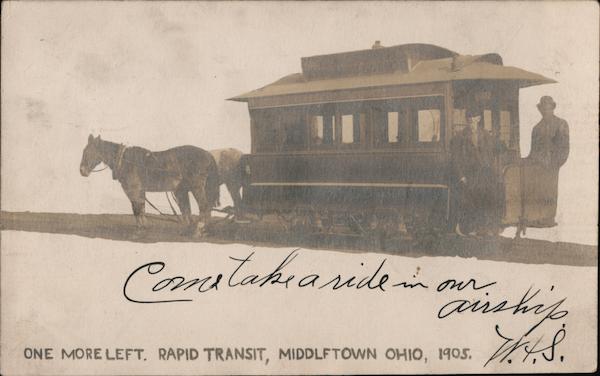 Come take a ride in our
airship.
W.H.S.
ONE MORE LEFT. RAPID TRANSIT, MIDDLFTOWN OHIO, 1905.